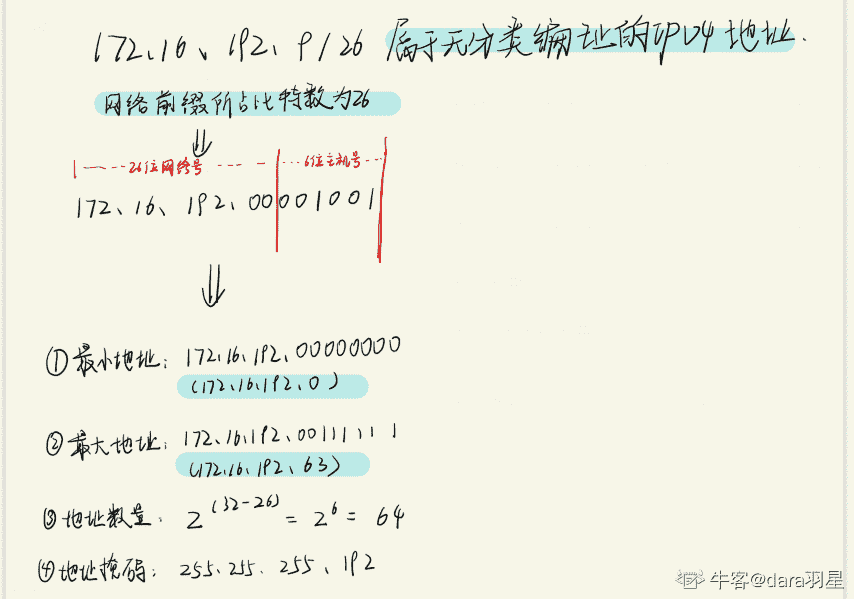 172.16、192、9/26 属于无分类编址的IPV4地址.
网络前缀所占比特数为26
26位网络号 6位主机号
172、16、192、00001001
①最小地址: 172.16、192、00000000
(172.16.192.0)
②最大地址: 172.16.192.00111111
(172.16.192、63)
③地址数量: 2^(32-26) = 2^6 = 64
④地址掩码: 255.255.255、192
牛客@dara羽星